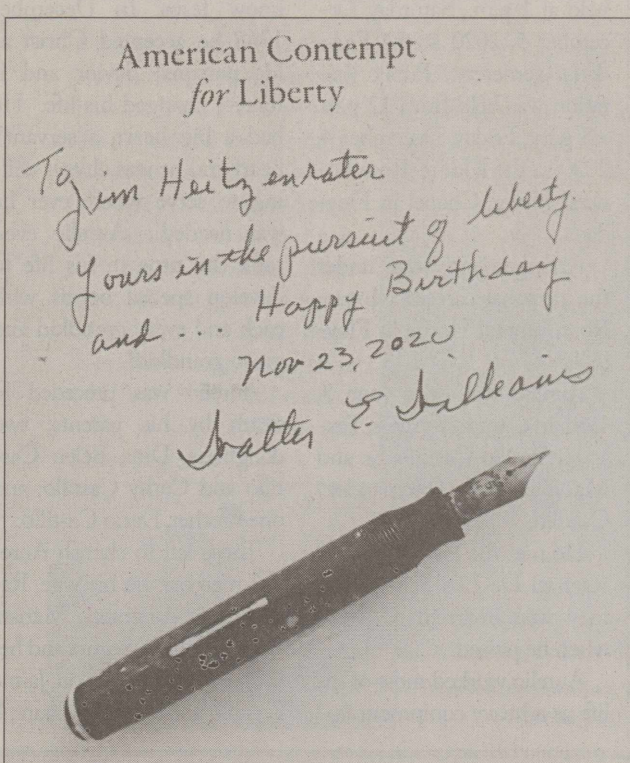 American Contempt
for Liberty
To
Jim Heitzenrater
Yours in the pursuit of liberty
and ... Happy Birthday
Nov 23, 2020
Walter E. Williams